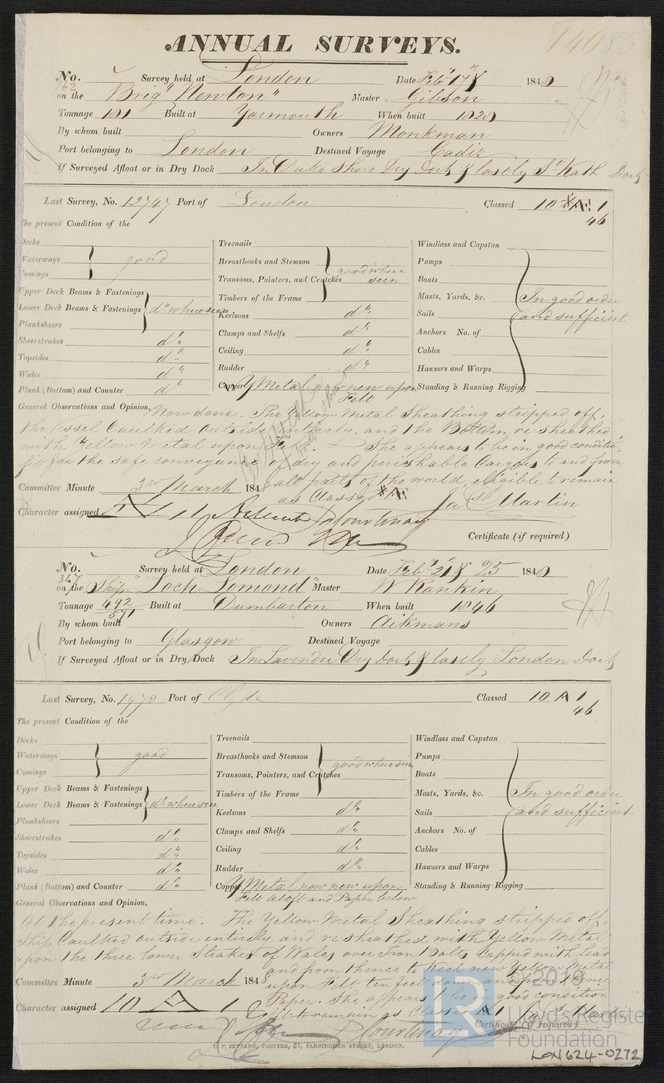 ANNUAL SURVEYS.
No. 162 Survey held at London Date Feby 17 & 184
on the Brig "Newton" Master Gibson
Tonnage 191 Built at Yarmouth When built 1820
By whom built Owners Monkman
Port belonging to London Destined Voyage Cadiz
If Surveyed Afloat or in Dry Dock In Duke Shore Dry Dock & lastly St Kath Dock
Last Survey, No. 12747 Port of London Classed 10 *Æ 1
46
The present Condition of the
Decks
Waterways good
Comings
Upper Deck Beams & Fastenings
Lower Deck Beams & Fastenings do where seen
Plankshears
Sheerstrakes do
Topsides do
Wales do
Plank (Bottom) and Counter do
Treenails
Breasthooks and Stemson good where seen
Transoms, Pointers, and Crutches
Timbers of the Frame
Keelsons do
Clamps and Shelfs do
Ceiling do
Rudder do
Copper Y Metal now new upon Felt
Windlass and Capstan
Pumps
Boats
Masts, Yards, &c. In good order
Sails and sufficient
Anchors No. of
Cables
Hawsers and Warps
Standing & Running Rigging
General Observations and Opinion, Now done. The Yellow Metal Sheathing stripped off,
the vessel Caulked outside entirely, and the Bottom, resheathed
with Yellow Metal upon Felt. She appears to be in good condition,
fit for the safe conveyance of dry and perishable Cargoes to and from
all parts of the world, eligible to remain
as Classed *Æ
Committee Minute 3rd March 184
Character assigned Æ 1
Jas Martin
Certificate (if required)
No. 347 Survey held at London Date Feby 21 & 25 184
on the Ship "Loch Lomond" Master W Rankin
Tonnage 492
571
Built at Dumbarton When built 1846
By whom built Owners Aikmans
Port belonging to Glasgow Destined Voyage
If Surveyed Afloat or in Dry Dock In Lavender Dry Dock & lastly London Dock
Last Survey, No. 1970 Port of Clyde Classed 10 A 1
46
The present Condition of the
Decks
Waterways good
Comings
Upper Deck Beams & Fastenings
Lower Deck Beams & Fastenings do where seen
Plankshears
Sheerstrakes do
Topsides do
Wales do
Plank (Bottom) and Counter do
Treenails
Breasthooks and Stemson good where seen
Transoms, Pointers, and Crutches
Timbers of the Frame
Keelsons do
Clamps and Shelfs do
Ceiling do
Rudder do
Copper Y Metal now new upon
Felt aloft and Paper below
Windlass and Capstan
Pumps
Boats
Masts, Yards, &c. In good order
Sails and sufficient
Anchors No. of
Cables
Hawsers and Warps
Standing & Running Rigging
General Observations and Opinion,
At the present time. The Yellow Metal Sheathing stripped off
Ship Caulked outside entirely, and resheathed with Yellow Metal
upon the three lower Strakes of Wales over Iron Bolts Capped with lead
and from thence to Keel new Yellow Metal
upon Felt ten feet down and
Paper. She appears to be in good condition
to remain as Classed A 1
Committee Minute 3rd March 184
Character assigned 10 A 1
Jas Martin
Certificate (if required)
PRINTER, 57, FARRINGDON STREET, LONDON.
LR
© 2019
Lloyd's Register
Foundation
LON 624-0272